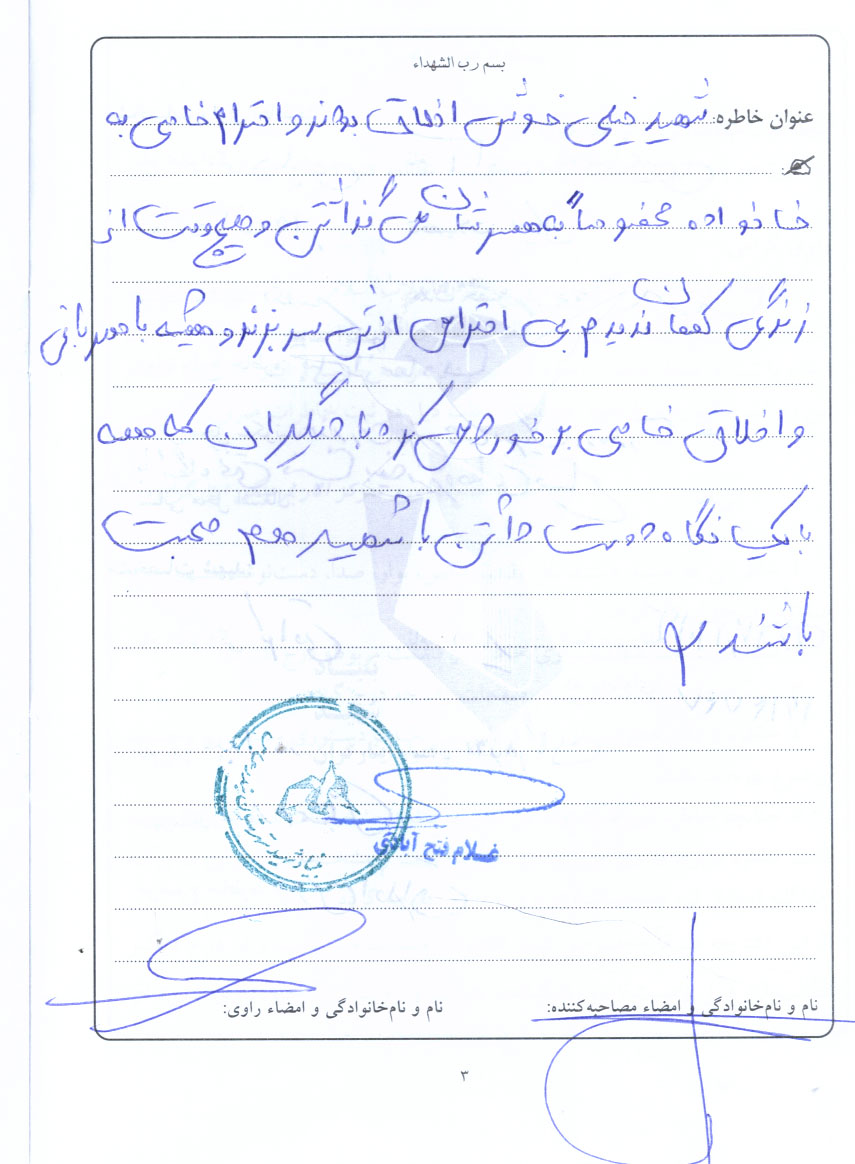 بسم رب الشهداء
عنوان خاطره: شهید خیلی خوش اخلاق بودند و احترام خاصی به
خانواده مخصوصاً به همسرشان می گذاشتن و هیچ وقت از
زندگی کمان ندیدم بی احترامی ازش سر بزند و همیشه با مهربانی
و اخلاق خاصی برخورد می کرد با دیگران که همه
با یک نگاه دوست داشتن با شهید هم صحبت
باشند
غلام فتح آبادی
نام و نام‌خانوادگی و امضاء مصاحبه‌کننده:
نام و نام‌خانوادگی و امضاء راوی:
۳